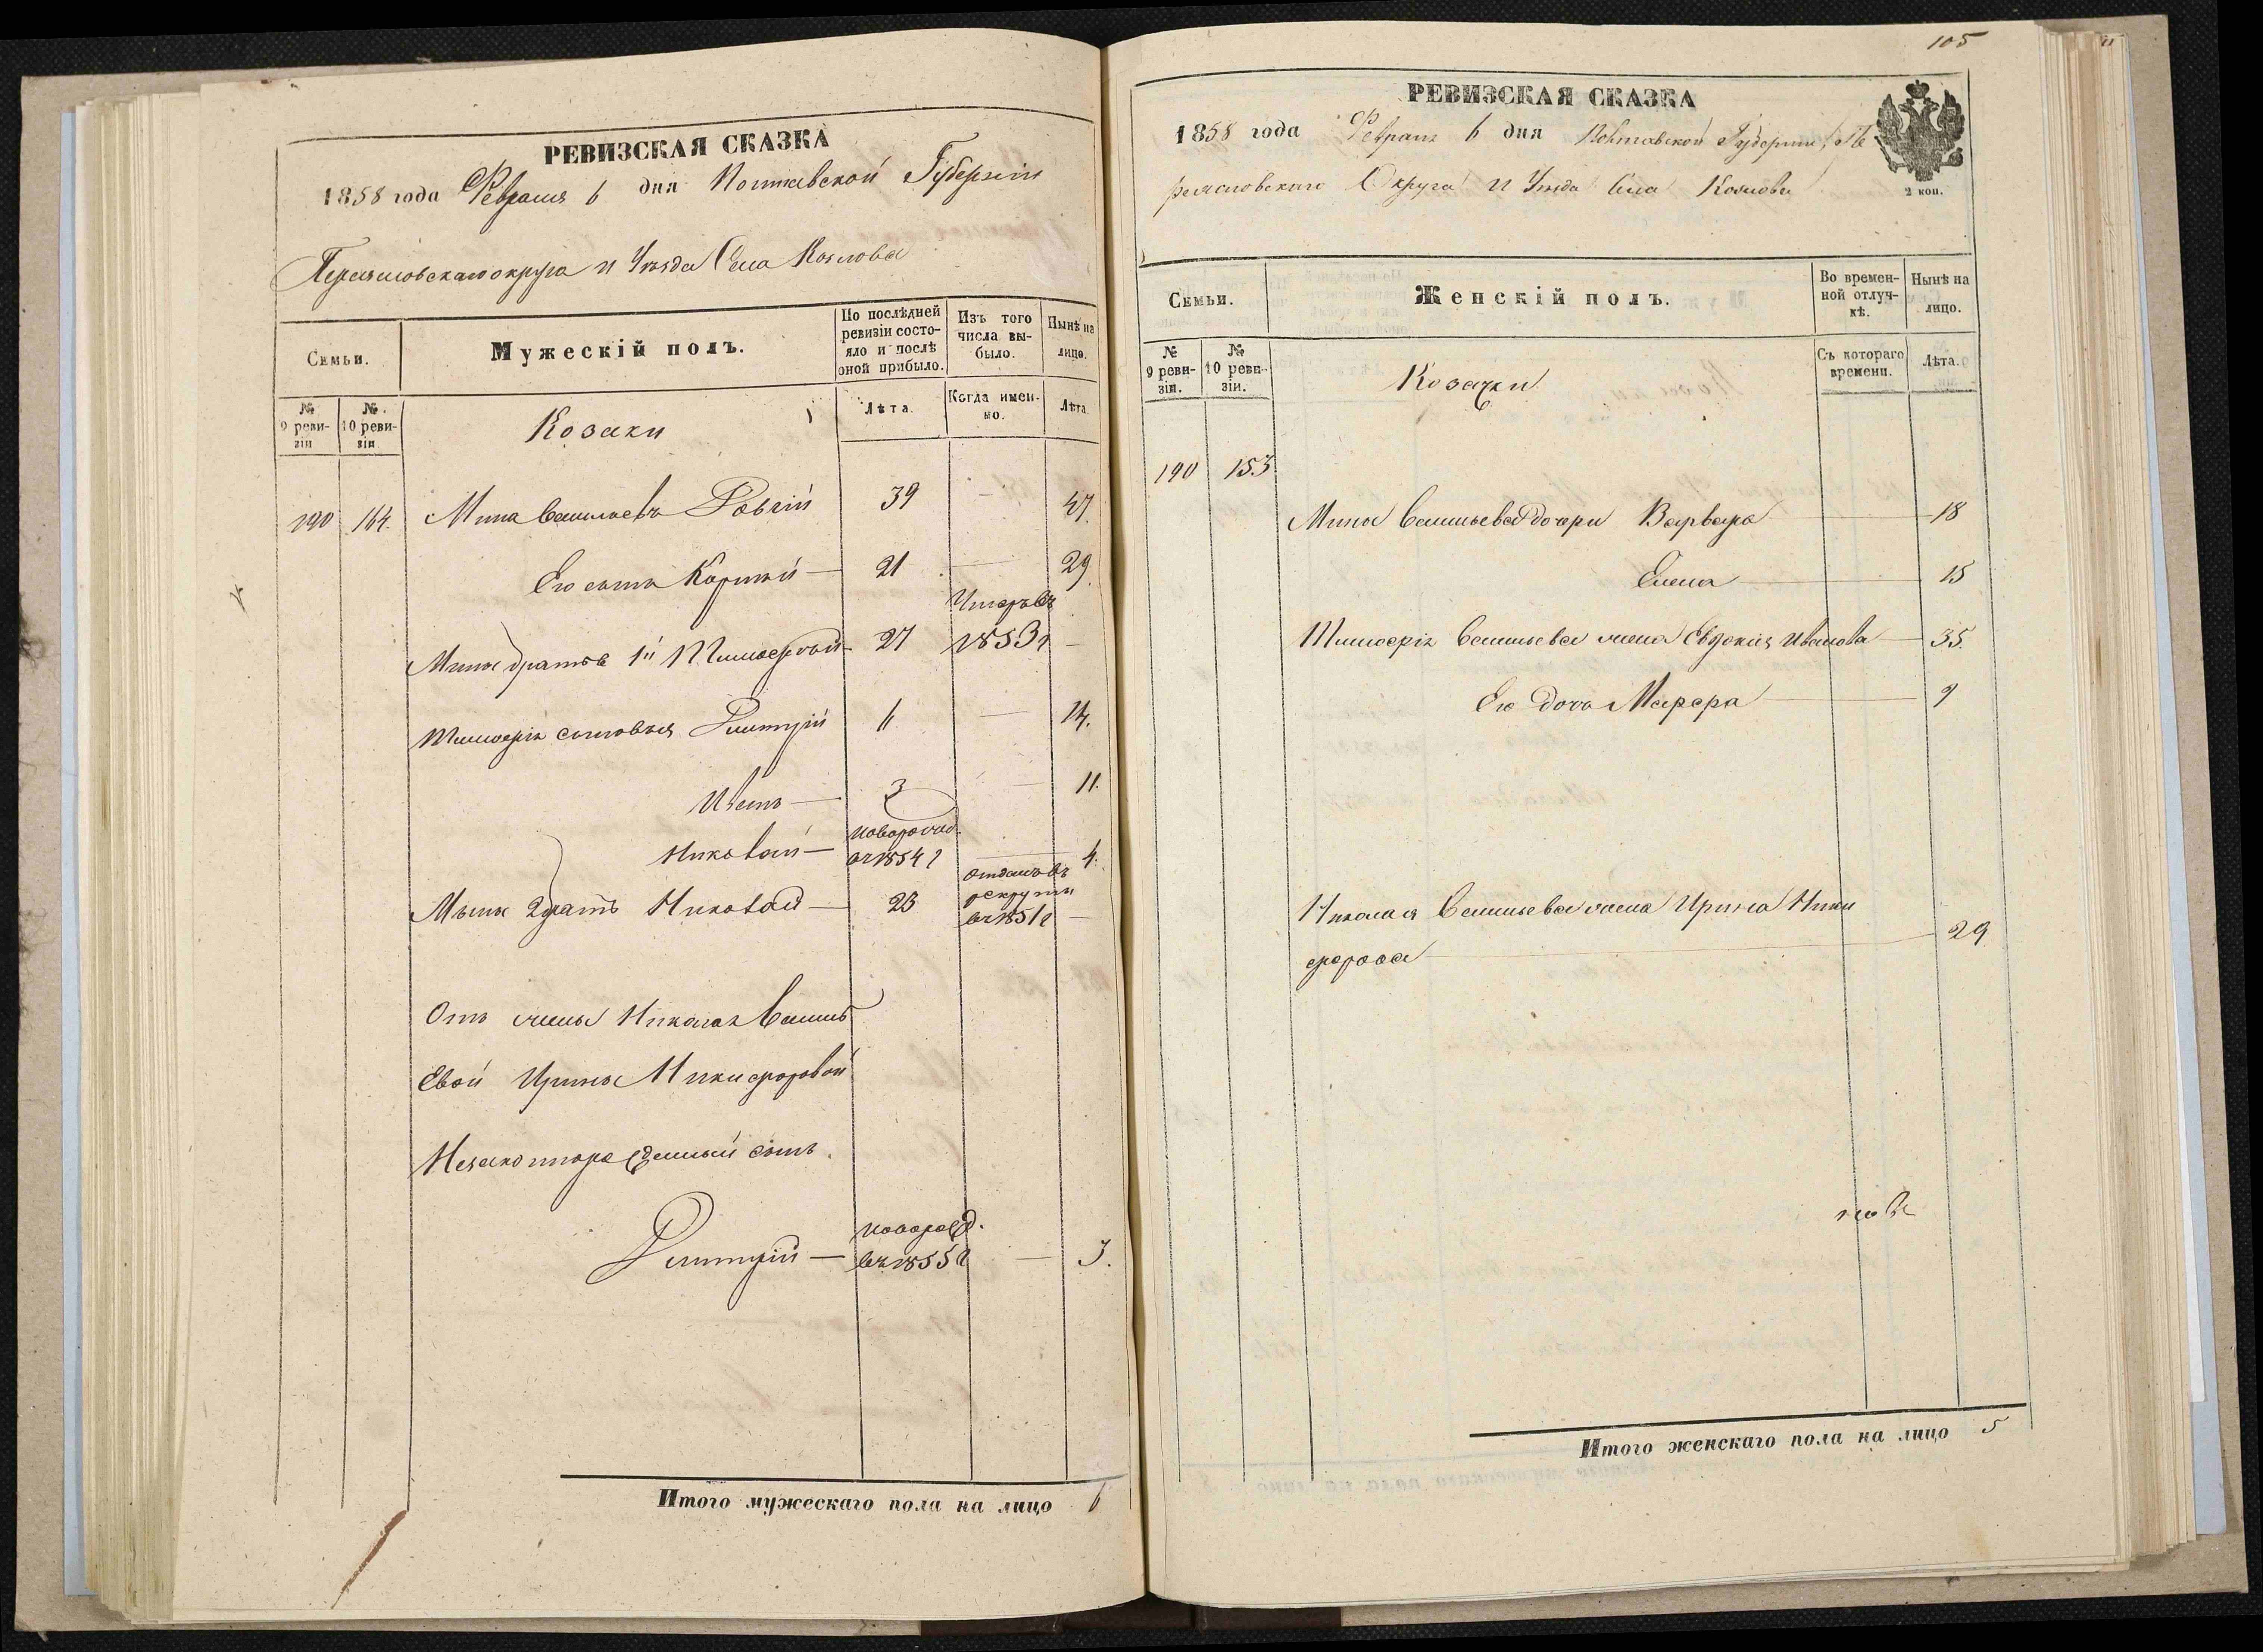 РЕВИЗСКАЯ СКАЗКА
1858 года Февраля 6 дня Полтавской Губернии
Переясловскаго округа и Уѣзда Села Козлова
Семьи.
Мужескій полъ.
По послѣдней ревизіи состояло и послѣ оной прибыло.
Изъ того числа выбыло.
Нынѣ на лицо.
№ 9 ревизіи
№ 10 ревизіи
Козаки
Лѣта.
Когда именно.
Лѣта
190 164. Мина Васильевъ 39 — 47.
Его сынъ Корнѣй — 21 — 29.
Мины братья 1й Тимофей — 27 Умеръ въ 1853 г —
Тимофея сыновья Дмитрій 6 — 14.
Иванъ — 3 — 11.
Николай — новорожд. въ 1854 г — 4.
Мины 2 братъ Николай — 23 отданъ въ рекруты въ 1851 г —
Отъ жены Николая Василь
евой Ирины Никифоровой
Незаконнорожденный сынъ
Дмитрій — новорожд. въ 1855 г — 3.
Итого мужескаго пола на лицо 6
105
РЕВИЗСКАЯ СКАЗКА
1858 года Февраля 6 дня Полтавской Губерніи Пе
реясловскаго Округа и Уѣзда Села Козлова
2 коп.
Семьи.
Женскій полъ.
Во временной отлучкѣ.
Нынѣ на лицо.
№ 9 ревизіи.
№ 10 ревизіи.
Козачки
Съ котораго времени.
Лѣта.
190 153
Мины Васильева дочери Варвара — 18
Елена — 15
Тимофея Васильева жена Евдокія Иванова — 35.
Его дочь Марфа — 9
Николая Васильева жена Ирина Ники
форова — 29
Итого женскаго пола на лицо 5